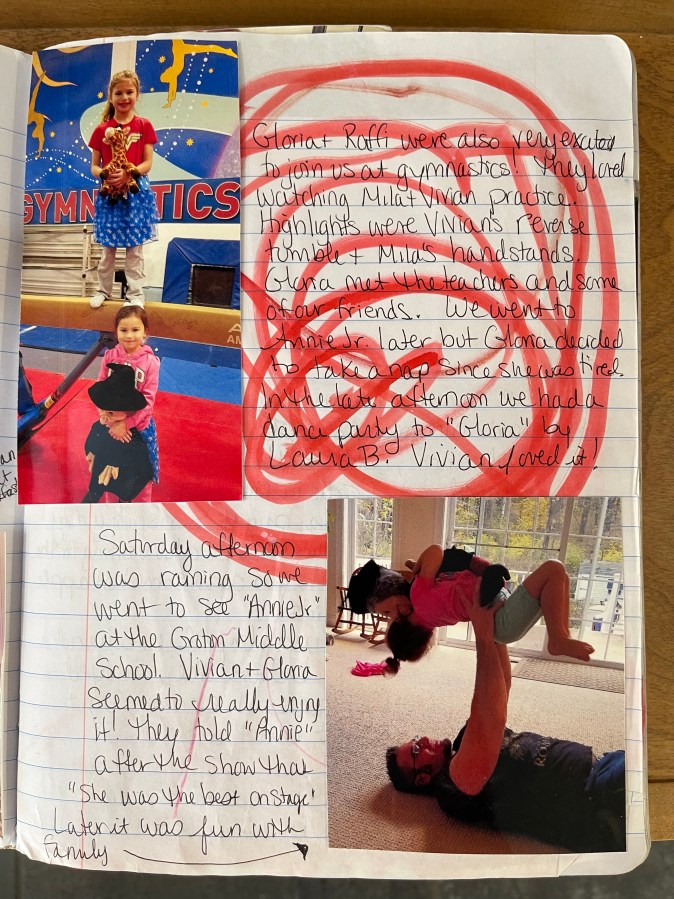 GYMNASTICS
Gloria + Raffi were also very excited
to join us at gymnastics! They loved
watching Mila + Vivian practice.
Highlights were Vivian's reverse
tumble + Mila's handstands.
Gloria met the teachers and some
of our friends. We went to
Annie Jr. later but Gloria decided
to take a nap since she was tired.
In the late afternoon we had a
dance party to "Gloria" by
Laura B. Vivian loved it!
Saturday afternoon
was raining so we
went to see "Annie Jr"
at the Groton Middle
School. Vivian + Gloria
seemed to really enjoy
it! They told "Annie"
after the show that
"She was the best on stage"
Later it was fun with
family